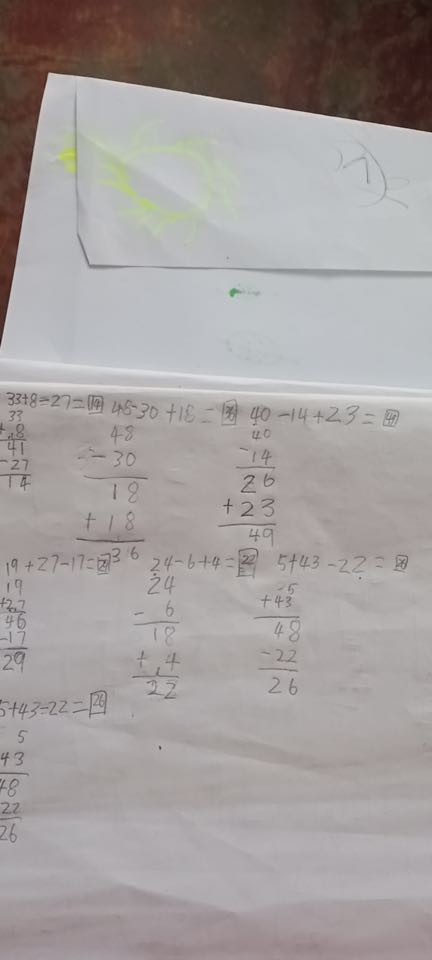 33+8=27=14 48-30+18=36 40-14+23=49
33 48 40
+8 -30 -14
41 18 26
-27 +18 +23
14 36 49
19+27-17=29 24-6+4=22 5+43-22=26
19 24 5
+27 -6 +43
46 18 48
-17 +4 -22
29 22 26
5+43-22=26
5
43
48
22
26